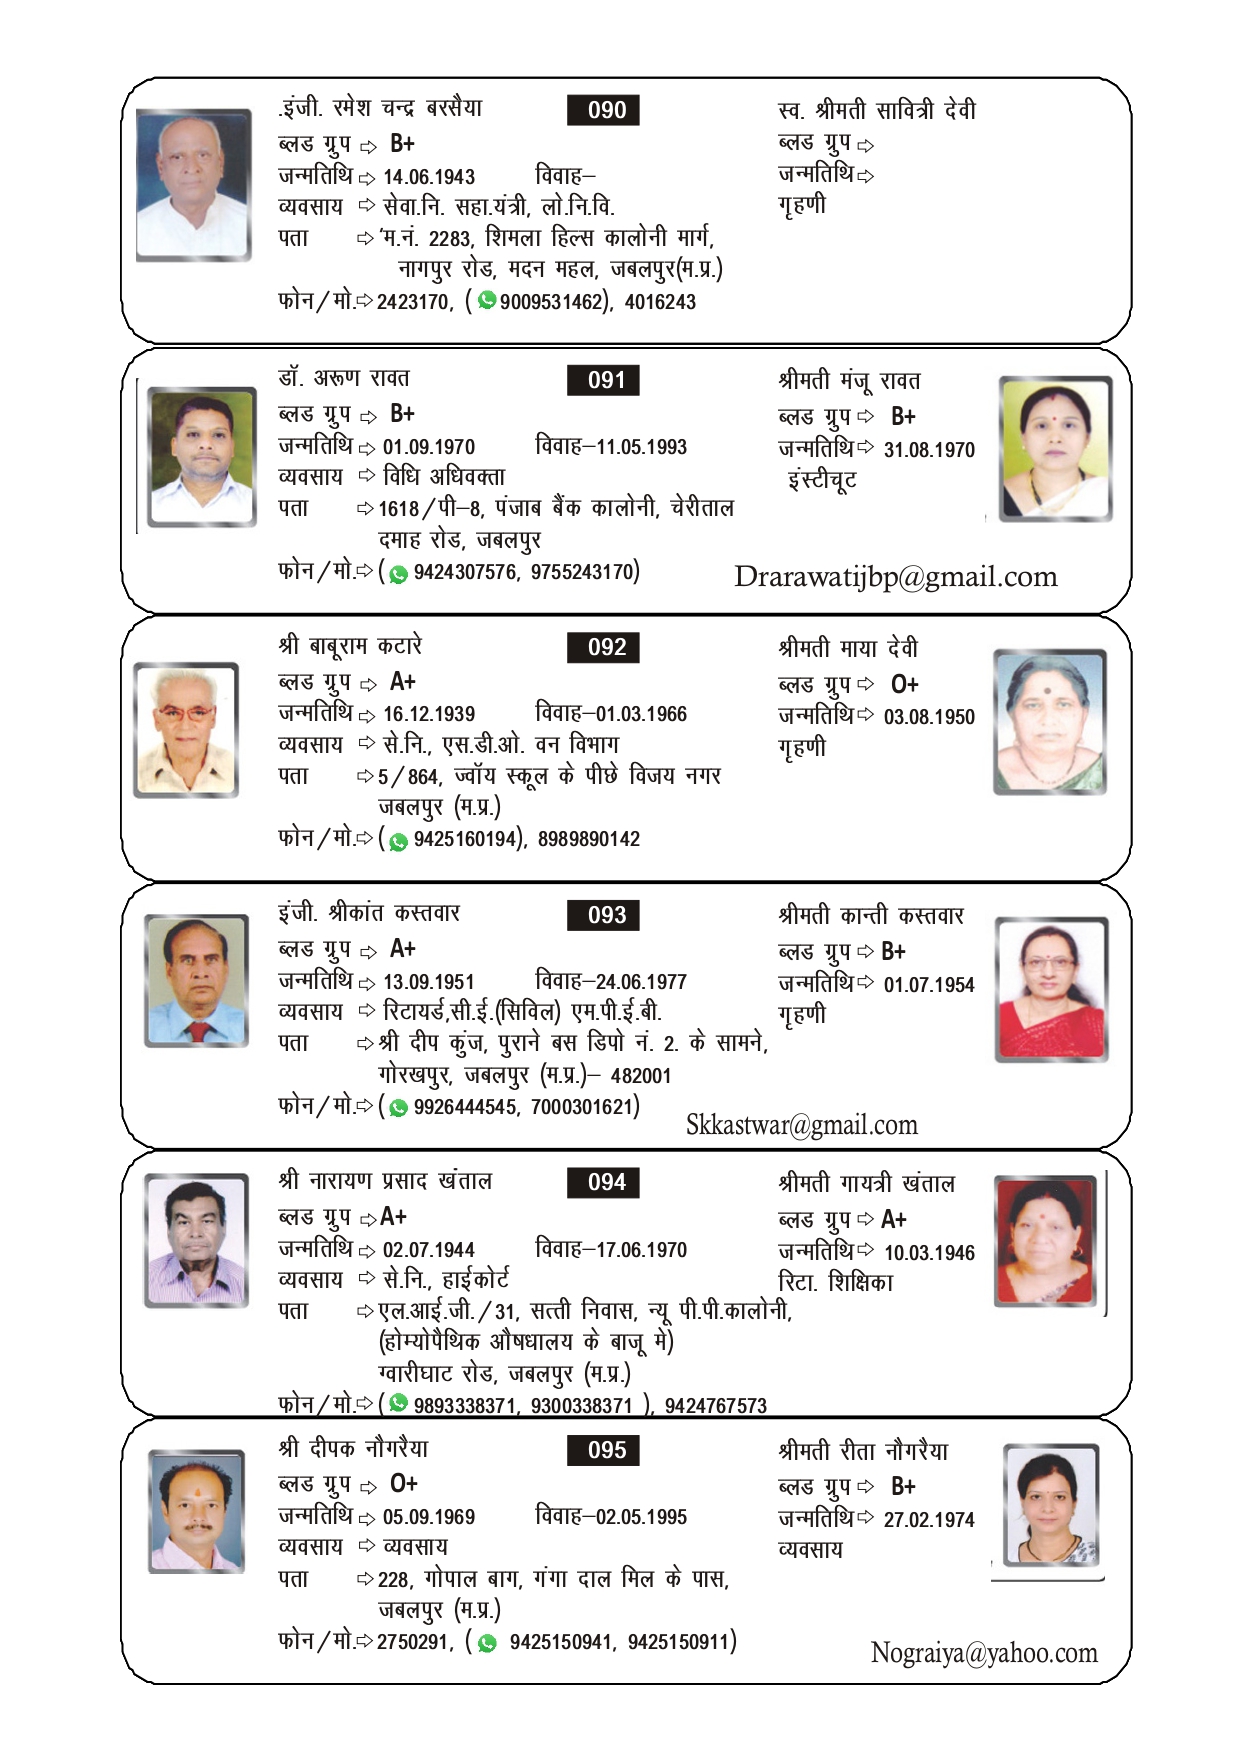 .इंजी. रमेश चन्द्र बरसैया 090 स्व. श्रीमती सावित्री देवी
ब्लड ग्रुप ⇨ B+ ब्लड ग्रुप ⇨
जन्मतिथि ⇨ 14.06.1943 विवाह– जन्मतिथि ⇨
व्यवसाय ⇨ सेवा.नि. सहा.यंत्री, लो.नि.वि. गृहणी
पता ⇨ 'म.नं. 2283, शिमला हिल्स कालोनी मार्ग,
नागपुर रोड, मदन महल, जबलपुर(म.प्र.)
फोन/मो.⇨ 2423170, ( 9009531462), 4016243
डॉ. अरूण रावत 091 श्रीमती मंजू रावत
ब्लड ग्रुप ⇨ B+ ब्लड ग्रुप ⇨ B+
जन्मतिथि ⇨ 01.09.1970 विवाह–11.05.1993 जन्मतिथि ⇨ 31.08.1970
व्यवसाय ⇨ विधि अधिवक्ता इंस्टीचूट
पता ⇨ 1618/पी–8, पंजाब बैंक कालोनी, चेरीताल
दमाह रोड, जबलपुर
फोन/मो.⇨ ( 9424307576, 9755243170) Drarawatijbp@gmail.com
श्री बाबूराम कटारे 092 श्रीमती माया देवी
ब्लड ग्रुप ⇨ A+ ब्लड ग्रुप ⇨ O+
जन्मतिथि ⇨ 16.12.1939 विवाह–01.03.1966 जन्मतिथि ⇨ 03.08.1950
व्यवसाय ⇨ से.नि., एस.डी.ओ. वन विभाग गृहणी
पता ⇨ 5/864, ज्वॉय स्कूल के पीछे विजय नगर
जबलपुर (म.प्र.)
फोन/मो.⇨ ( 9425160194), 8989890142
इंजी. श्रीकांत कस्तवार 093 श्रीमती कान्ती कस्तवार
ब्लड ग्रुप ⇨ A+ ब्लड ग्रुप ⇨ B+
जन्मतिथि ⇨ 13.09.1951 विवाह–24.06.1977 जन्मतिथि ⇨ 01.07.1954
व्यवसाय ⇨ रिटायर्ड,सी.ई.(सिविल) एम.पी.ई.बी. गृहणी
पता ⇨ श्री दीप कुंज, पुराने बस डिपो नं. 2. के सामने,
गोरखपुर, जबलपुर (म.प्र.)– 482001
फोन/मो.⇨ ( 9926444545, 7000301621) Skkastwar@gmail.com
श्री नारायण प्रसाद खंताल 094 श्रीमती गायत्री खंताल
ब्लड ग्रुप ⇨ A+ ब्लड ग्रुप ⇨ A+
जन्मतिथि ⇨ 02.07.1944 विवाह–17.06.1970 जन्मतिथि ⇨ 10.03.1946
व्यवसाय ⇨ से.नि., हाईकोर्ट रिटा. शिक्षिका
पता ⇨ एल.आई.जी./31, सत्ती निवास, न्यू पी.पी.कालोनी,
(होम्योपैथिक औषधालय के बाजू मे)
ग्वारीघाट रोड, जबलपुर (म.प्र.)
फोन/मो.⇨ ( 9893338371, 9300338371 ), 9424767573
श्री दीपक नौगरैया 095 श्रीमती रीता नौगरैया
ब्लड ग्रुप ⇨ O+ ब्लड ग्रुप ⇨ B+
जन्मतिथि ⇨ 05.09.1969 विवाह–02.05.1995 जन्मतिथि ⇨ 27.02.1974
व्यवसाय ⇨ व्यवसाय व्यवसाय
पता ⇨ 228, गोपाल बाग, गंगा दाल मिल के पास,
जबलपुर (म.प्र.)
फोन/मो.⇨ 2750291, ( 9425150941, 9425150911) Nograiya@yahoo.com